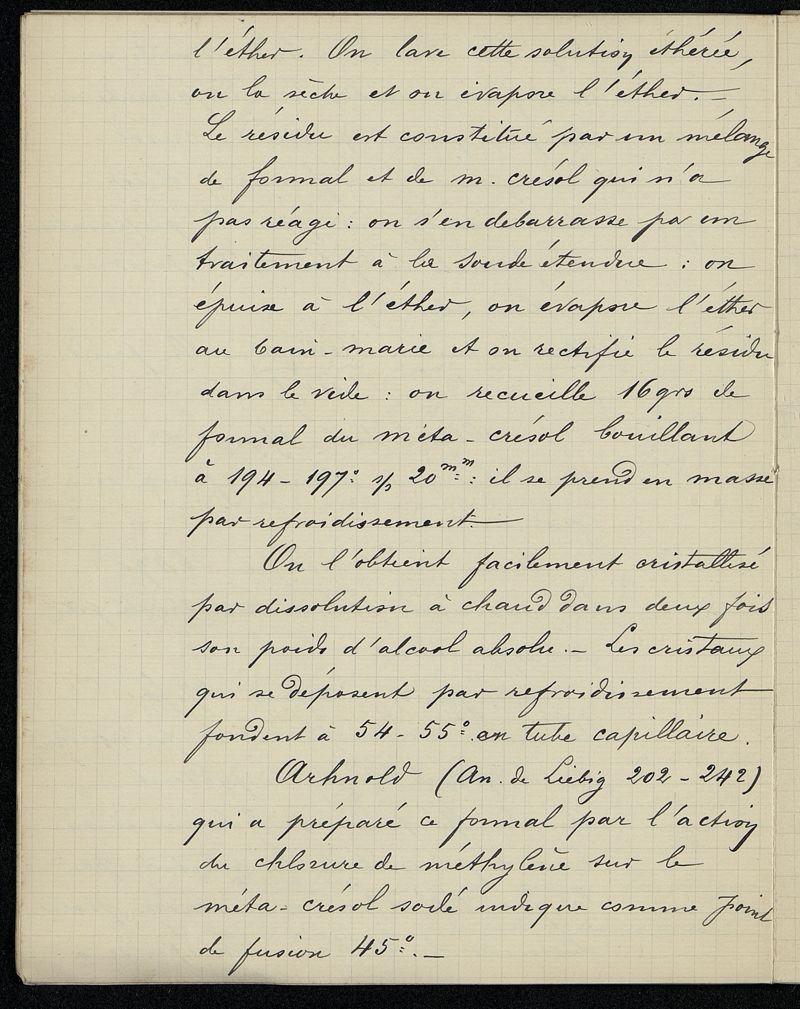 l'éther. On lave cette solution éthérée,
on la sèche et on évapore l'éther. –
Le résidu est constitué par un mélange
de formal et de m. crésol qui n'a
pas réagi : on s'en debarrasse par un
traitement à la soude étendue : on
épuise à l'éther, on évapore l'éther
au bain-marie et on rectifie le résidu
dans le vide : on recueille 16 grs de
formal du méta-crésol bouillant
à 194-197° s/s 20 m.m : il se prend en masse
par refroidissement. –
On l'obtient facilement cristallisé
par dissolution à chaud dans deux fois
son poids d'alcool absolu. – Les cristaux
qui se déposent par refroidissement
fondent à 54-55° en tube capillaire.
Arhnold (An. de Liebig 202-242)
qui a préparé ce formal par l'action
du chlorure de méthylène sur le
méta-crésol sodé indique comme point
de fusion 45°. –